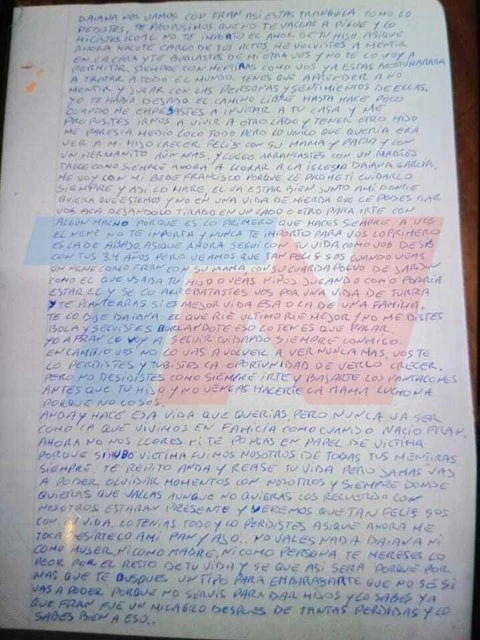 DAIANA NOS VAMOS CON FRAN ASI ESTAS TRANQUILA COMO LO
PEDISTES, TE PROPUSIMOS QUE NO TE VALLAS A PINUE Y LO
HICISTES IGUAL NO TE INBORTO EL AMOR DE TU HIJO. ASIQUE
AHORA HACETE CARGO DE TUS ACTOS ME VOLVISTES A MENTIR
EN LA CARA Y TE BURLASTES DE MI OTRA VES Y NO TE LO VOY A
PERMITIR, SIEMPRE CON MENTIRAS COMO VOS YA ESTAS ACOSTUNBRADA
A TRATAR A TODO EL MUNDO. TENES QUE APRENDER A NO
MENTIR Y JUGAR CON LAS PERSONAS Y SENTIMIENTOS DE ELLAS.
YO TE HABIA DEJADO EL CAMINO LIBRE HASTA HACE POCO
CUANDO ME EMPESASTES A INVITAR A TU CASA Y ME
PROPUSISTES IRNOS A VIVIR A OTRO LADO Y TENER OTRO HIJO
ME PARESIA MEDIO LOCO TODO PERO LO UNICO QUE QUERIA ERA
VER A MI HIJO CRECER FELIS CON SU MAMA Y PAPA Y CON
UN HERMANITO AÑUN MAS, Y LUEGO ARRANCASTES CON UN MARTES
TARDE COMO SIEMPRE AHORA A LLORAR A LA IGLESIA DAIANA GARCIA.
ME VOY CON MI BEBE FRANCISCO PORQUE LE PROMETI CUIDARLO
SIEMPRE Y ASI LO HARE, EL VA ESTAR BIEN JUNTO AMI DONDE
QUIERA QUE ESTEMOS Y NO EN UNA VIDA DE MIERDA QUE LE PODES DAR
VOS ACA DEJANDOLO TIRADO EN UN LADO O OTRO PARA IRTE CON
ALGUN MACHO PORQUE ES LO PRIMERO QUE HACES SIEMPRE A VOS
EL NENE NO TE INPORTA Y NUNCA TE INPORTO PARA VOS LO PRIMERO
ES LA DE ABAJO. ASIQUE AHORA SEGUI CON TU VIDA COMO VOS DESIS
CON TUS 34 AÑOS PERO VEAMOS QUE TAN FELIS SOS CUANDO VEAS
UN NENE COMO FRAN CON SU MAMA, CON SU GUARDA POLVO DE JARDIN
COMO EL QUE USABA TU HIJO O VEAS NIÑOS JUGANDO COMO PODRIA
ESTAR EL Y SE LO ARREBATASTES VOS POR UNA VIDA DE TURRA
Y TE PLANTEARAS SI ES MEJOR VIDA ESA O LA DE UNA FAMILIA.
TE LO DIJE DAIANA EL QUE RIE ULTIMO RIE MEJOR Y NO ME DISTES
BOLA Y SEGUISTES BURLANDOTE ESO LO TENES QUE PAGAR.
YO A FRAN LO VOY A SEGUIR CUIDANDO SIEMPRE CONMIGO.
EN CAMBIO VOS NO LO VAS A VOLVER A VER NUNCA MAS, VOS TE
LO PERDISTES Y TUBISTES LA OPORTUNIDAD DE VERLO CRECER.
PERO NO DESIDISTES COMO SIEMPRE IRTE Y BAJARTE LOS PANTALONES
ANTES QUE TU HIJO Y NO VENGAS HACERTE LA MAMA LUCHONA
PORQUE NO LO SOS.
ANDA Y HACE ESA VIDA QUE QUERIAS, PERO NUNCA VA SER
COMO LA QUE VIVIMOS EN FAMILIA COMO CUANDO NACIO FRAN.
AHORA NO NOS LLORES NI TE PONGAS EN PAPEL DE VICTIMA
PORQUE SI HUBO VICTIMA FUIMOS NOSOTROS DE TODAS TUS MENTIRAS
SIEMPRE. TE REPITO ANDA Y REASE TU VIDA PERO JAMAS VAS
A PODER OLVIDAR MOMENTOS CON NOSOTROS Y SIEMPRE DONDE
QUIERAS QUE VALLAS AUNQUE NO QUIERAS LOS RECUERDO CON
NOSOTROS ESTARAN PRESENTE Y VEREMOS QUE TAN FELIS SOS
CON TU VIDA. LO TENIAS TODO Y LO PERDISTES ASIQUE AHORA ME
TOCA DESIRTELO AMI PAN Y AJO.. NO VALES NADA DAIANA NI
COMO MUJER, NI COMO MADRE, NI COMO PERSONA TE MERESES LO
PEOR POR EL RESTO DE TU VIDA Y SE QUE ASI SERA PORQUE POR
MAS QUE TE BUSQUES UN TIPO PARA EMBARASARTE QUE NO SE SI
VAS A PODER PORQUE NO SERVIS PARA DAR HIJOS Y LO SABES YA
QUE FRAN FUE UN MILAGRO DESPUES DE TANTAS PERDIDAS Y LO
SABES BIEN A ESO..